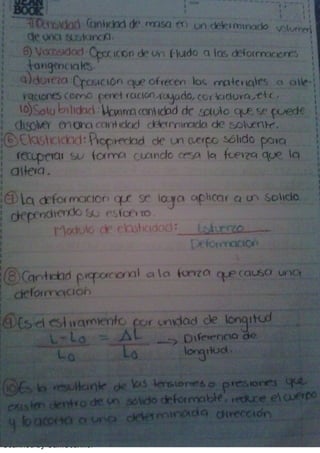 SCAN
BOOK
7) Densidad: Cantidad de masa en un determinado volumen
de una sustancia.
8) Viscosidad: Oposicion de un fluido a las deformaciones
tangenciales.
9) dureza: Oposición que ofrecen los materiales a alte-
raciones como penetración, rayado, cortadura, etc.
10) Solubilidad: Maxima cantidad de soluto que se puede
disolver en una cantidad determinada de solvente.
⑥ Elasticidad: Propiedad de un cuerpo sólido para
recuperar su forma cuando cesa la fuerza que la
altera.
⑦ La deformacion que se laya aplicar a un solido
dependiendo su esfuerzo.
Modulo de elasticidad: Esfuerzo
Deformación
⑧ Cantidad proporcional a la fuerza que causa una
deformación
⑨ Es el estiramiento por unidad de longitud
L - L₀ = ΔL → Diferencia de
L₀ L₀ longitud.
⑩ Es la resultante de las tensiones o presiones que
existen dentro de un sólido deformable, reduce el cuerpo
y lo acorta a una determinada dirección